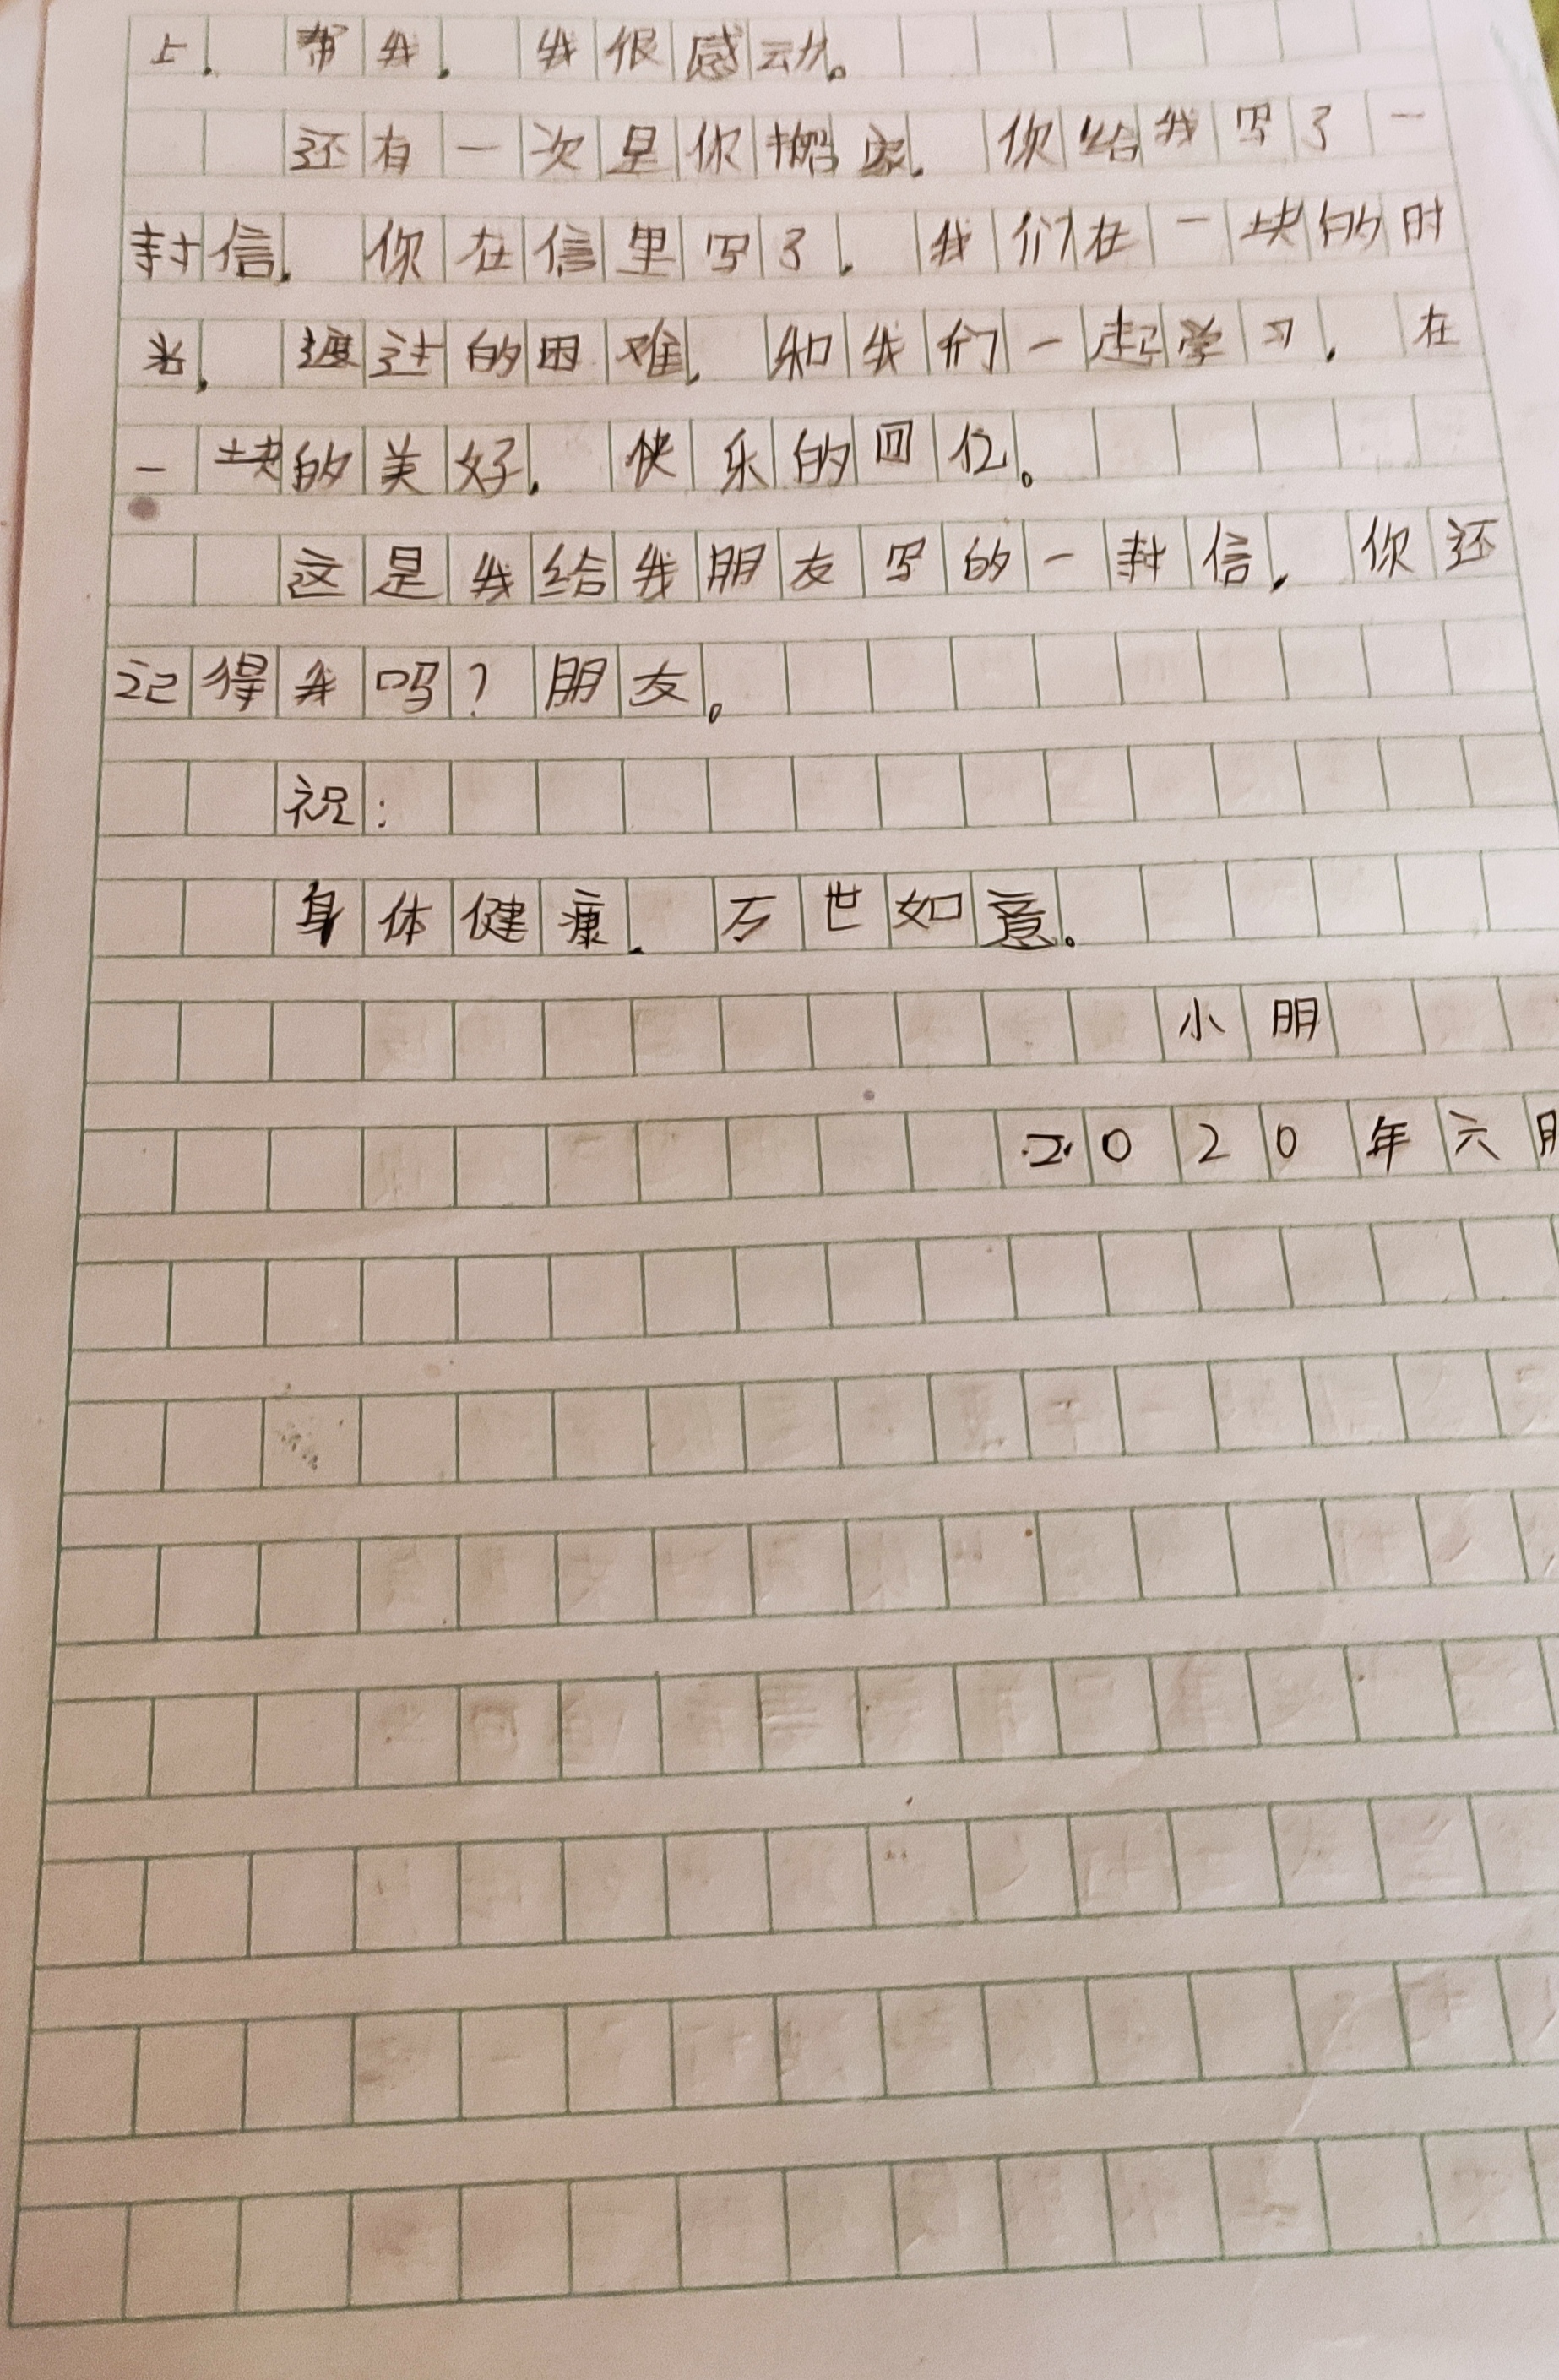 上，帮我，我很感动。
还有一次是你搬家，你给我写了一
封信，你在信里写了，我们在一块的时
光，渡过的困难，和我们一起学习，在
一块的美好，快乐的回亿。
这是我给我朋友写的一封信，你还
记得我吗？朋友。
祝：
身体健康，万世如意。
小明
2020年六月